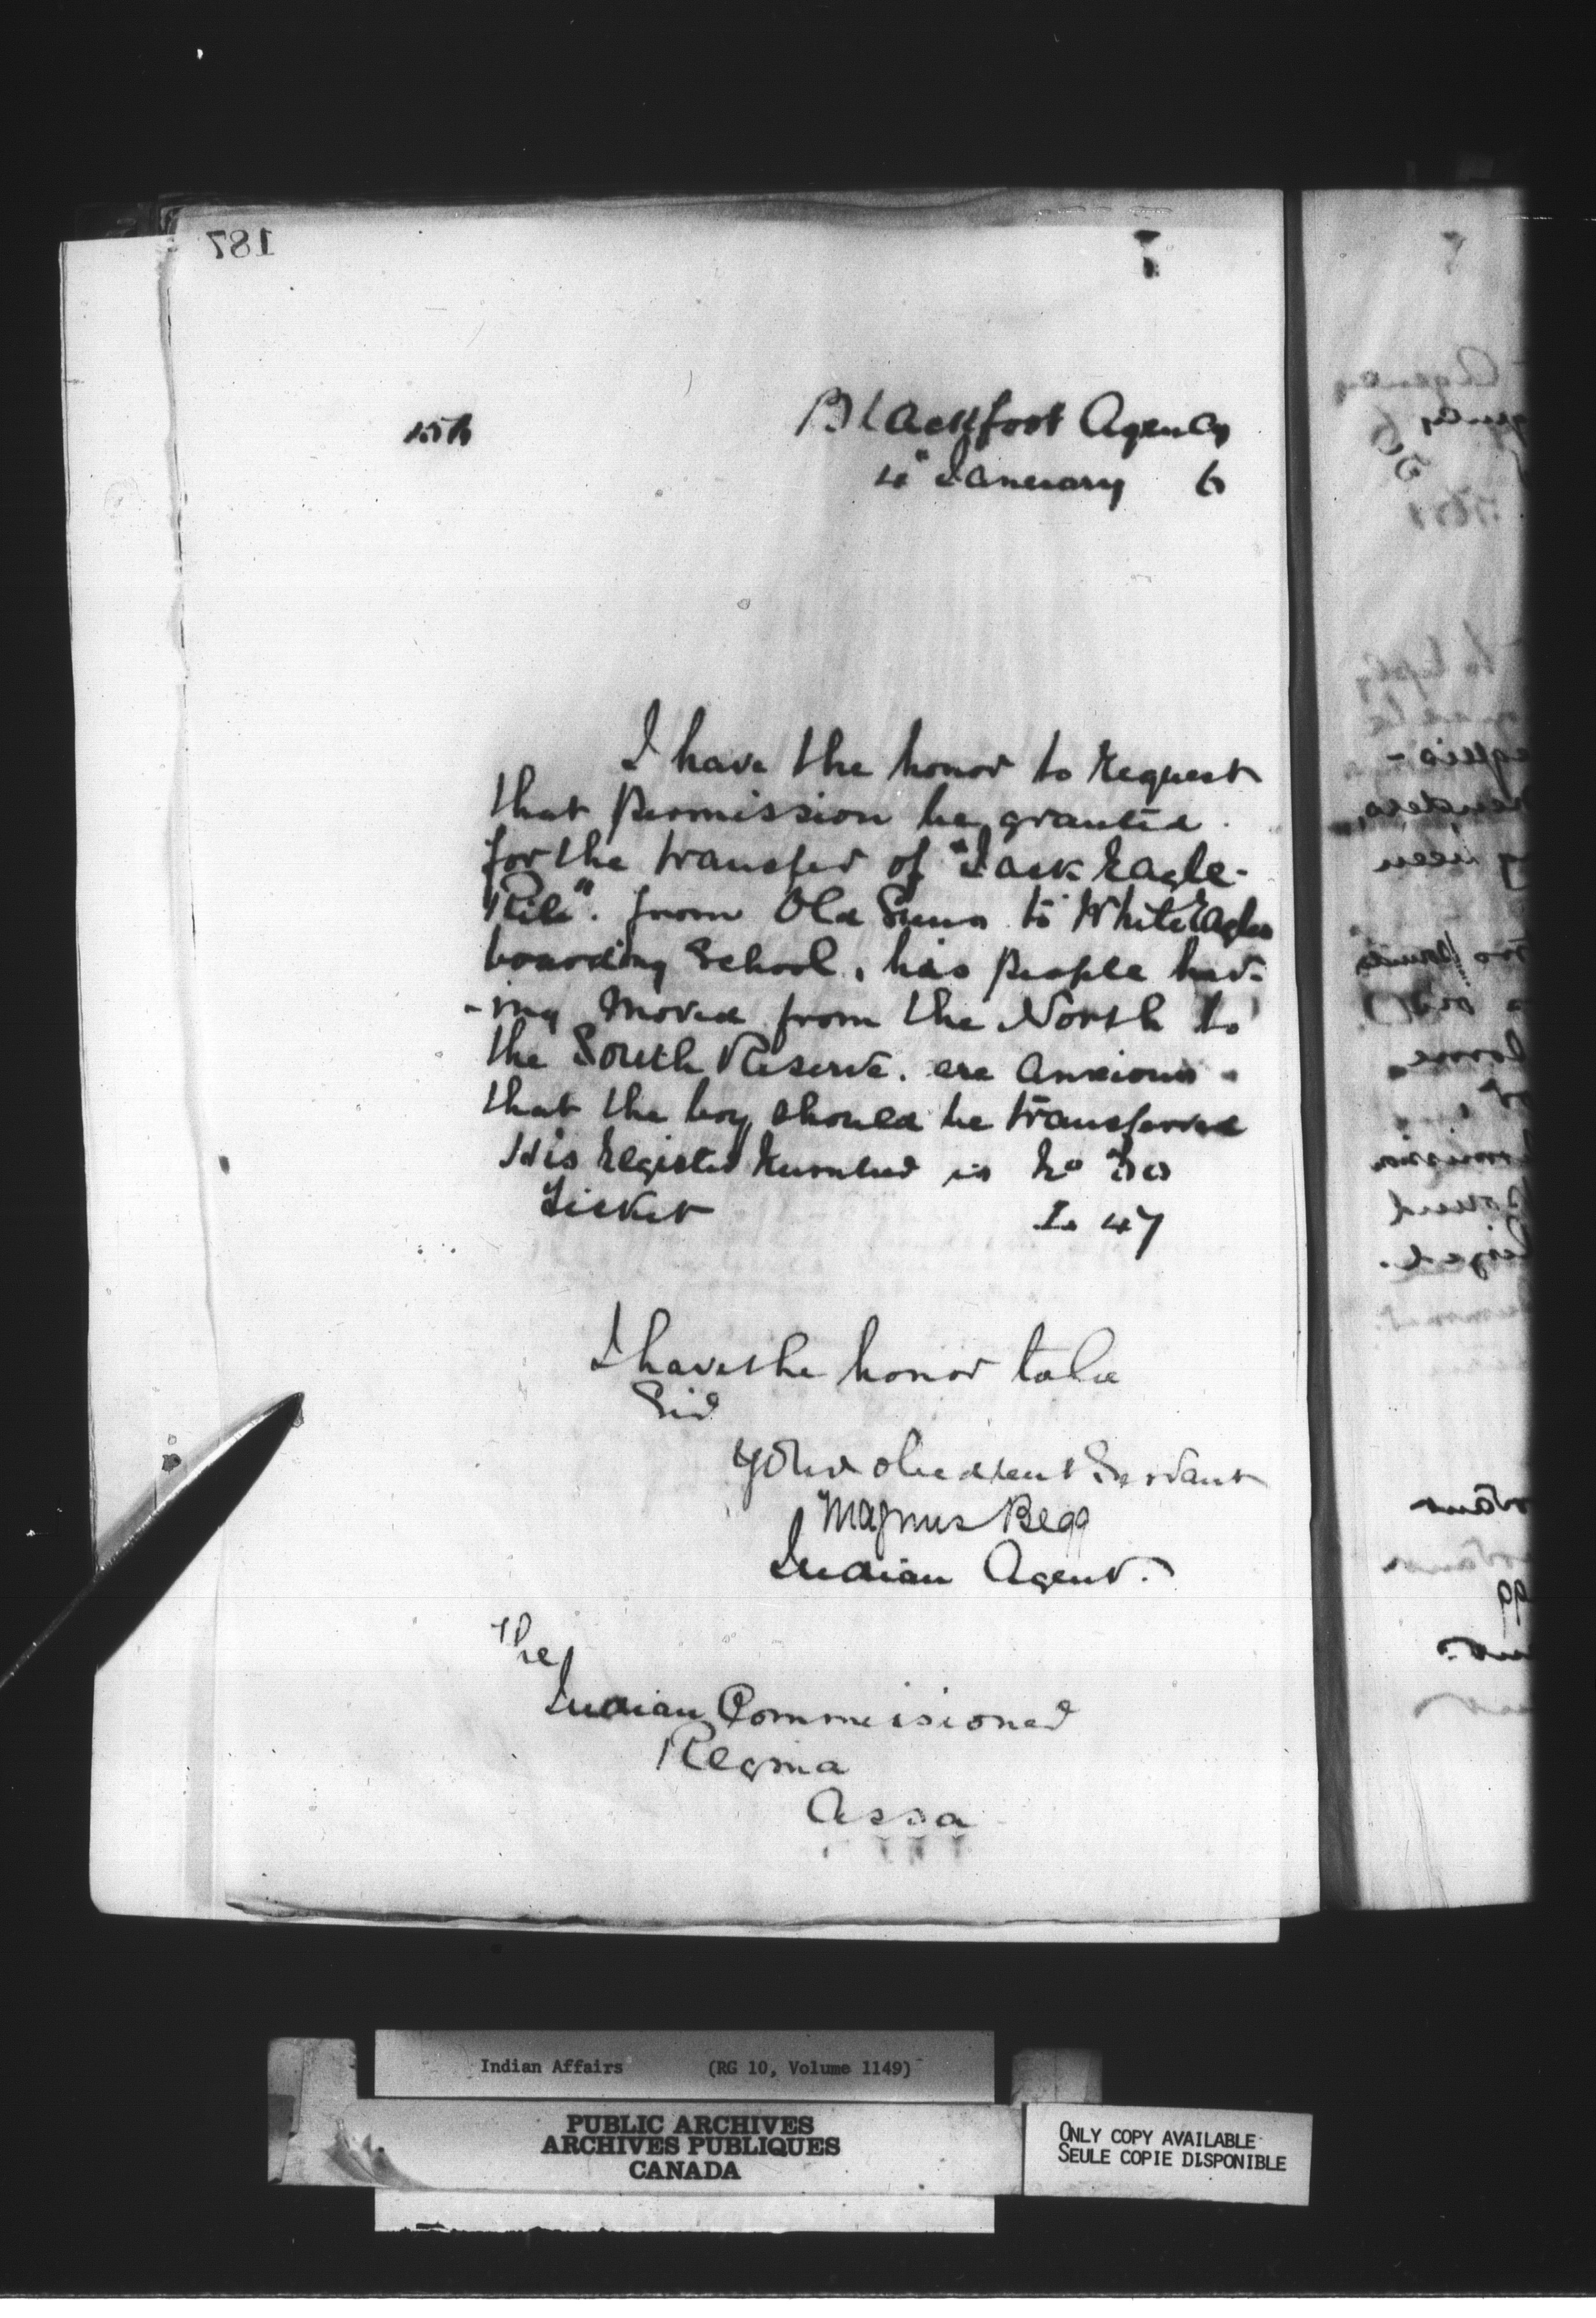 187
Blackfoot Agency
4" January 6
I have the honor to request
that permission be granted
for the transfer of "Jack Eagle-
Rib". from Old Suns to White Eagles
boarding School, his people hav-
-ing moved from the North to
the South Reserve. are anxious
that the boy should be transferred
His register number is No 30
Ticket 47
I have the honor to be
Sir
your obedient Servant
Magnus Begg
Indian Agent.
The
Indian Commissioner
Regina
Assa
Indian Affairs (RG 10, Volume 1149)
PUBLIC ARCHIVES
ARCHIVES PUBLIQUES
CANADA
ONLY COPY AVAILABLE
SEULE COPIE DISPONIBLE